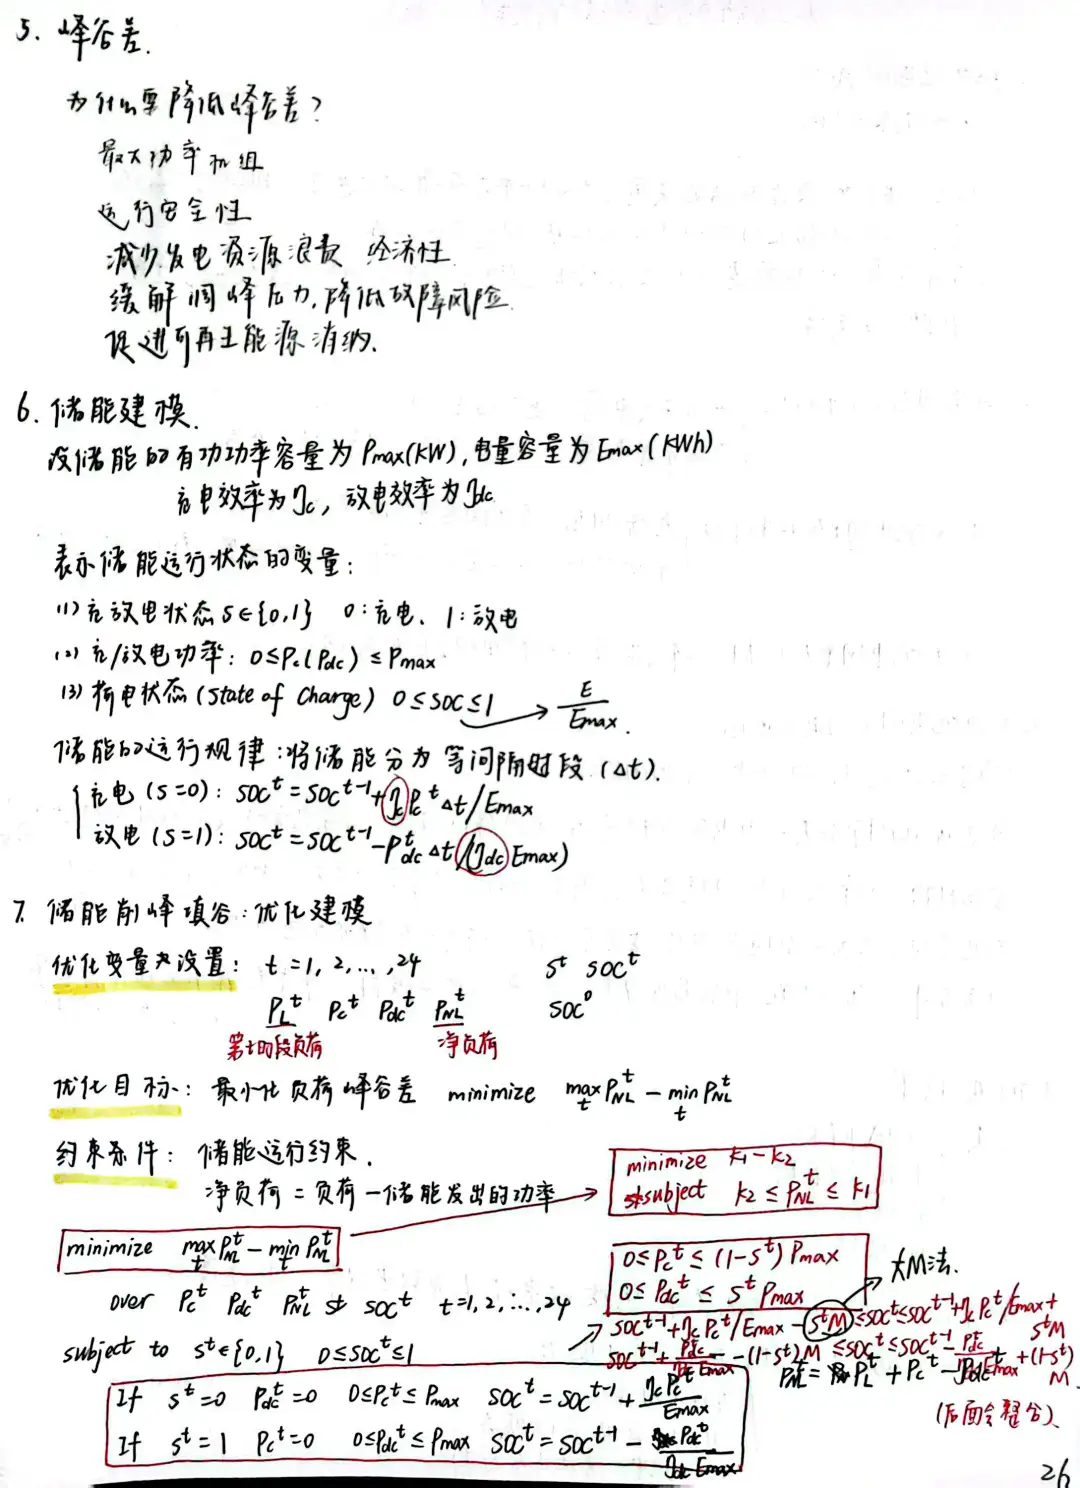 5. 峰谷差.
为什么要降低峰谷差?
最大功率机组
运行安全性
减少发电资源浪费 经济性
缓解调峰压力,降低故障风险.
促进可再生能源消纳.
6. 储能建模.
设储能的有功功率容量为 Pmax(KW), 电量容量为 Emax (KWh)
充电效率为 ηc, 放电效率为 ηdc
表示储能运行状态的变量:
(1) 充放电状态 S∈{0,1} 0:充电、1:放电
(2) 充/放电功率: 0≤Pc(Pdc)≤Pmax
(3) 荷电状态 (State of Charge) 0≤SOC≤1 → E/Emax.
储能的运行规律:将储能分为等间隔时段 (Δt).
充电 (S=0): SOC^t = SOC^t-1 + ηc Pc^t Δt/Emax
放电 (S=1): SOC^t = SOC^t-1 - Pdc^t Δt/(ηdc Emax)
7. 储能削峰填谷:优化建模
优化变量设置: t=1,2,...,24 S^t SOC^t
PL^t Pc^t Pdc^t PNL^t SOC^0
第t时段负荷 净负荷
优化目标: 最小化负荷峰谷差 minimize max_t PNL^t - min_t PNL^t
约束条件: 储能运行约束.
净负荷 = 负荷 - 储能发出的功率
minimize K1-K2
subject K2 ≤ PNL^t ≤ K1
minimize max_t PNL^t - min_t PNL^t
0≤Pc^t ≤ (1-S^t) Pmax
0≤Pdc^t ≤ S^t Pmax
大M法.
over Pc^t Pdc^t PNL^t S^t SOC^t t=1,2,...,24
SOC^t-1 + ηc Pc^t/Emax - S^t M ≤ SOC^t ≤ SOC^t-1 + ηc Pc^t/Emax + S^t M
subject to S^t∈{0,1} 0≤SOC^t≤1
SOC^t-1 + Pdc^t/(ηdc Emax) - (1-S^t)M ≤ SOC^t ≤ SOC^t-1 - Pdc^t/(ηdc Emax) + (1-S^t)M
PNL^t = PL^t + Pc^t - Pdc^t
(后面会整合).
If S^t=0 Pdc^t=0 0≤Pc^t≤Pmax SOC^t = SOC^t-1 + ηc Pc^t/Emax
If S^t=1 Pc^t=0 0≤Pdc^t≤Pmax SOC^t = SOC^t-1 - Pdc^t/(ηdc Emax)
26